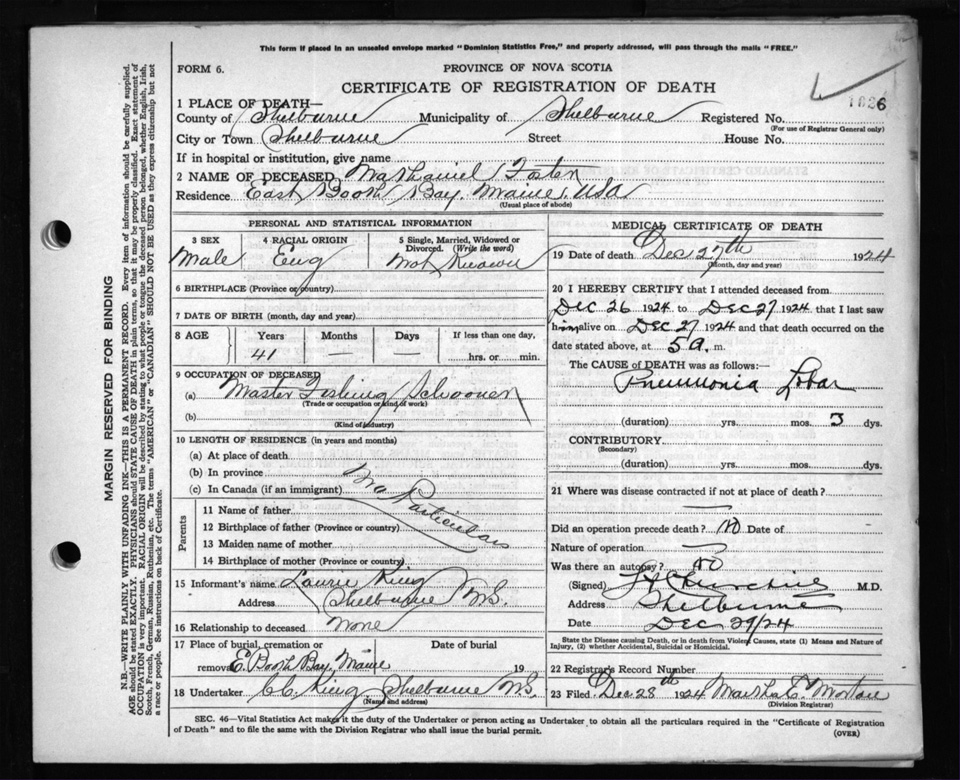 This form if placed in an unsealed envelope marked "Dominion Statistics Free," and properly addressed, will pass through the mails "FREE."
FORM 6. PROVINCE OF NOVA SCOTIA
CERTIFICATE OF REGISTRATION OF DEATH
1 PLACE OF DEATH—
County of Shelburne Municipality of Shelburne Registered No. 1626
(For use of Registrar General only)
City or Town Shelburne Street House No.
If in hospital or institution, give name
2 NAME OF DECEASED Nathaniel Foster
Residence East Booth Bay. Maine. USA
(Usual place of abode)
PERSONAL AND STATISTICAL INFORMATION
3 SEX 4 RACIAL ORIGIN 5 Single, Married, Widowed or Divorced. (Write the word)
Male Eng Not Known
6 BIRTHPLACE (Province or country)
7 DATE OF BIRTH (month, day and year)
8 AGE Years Months Days If less than one day,
41 — — hrs. or min.
9 OCCUPATION OF DECEASED
(a) Master Fishing Schooner
(Trade or occupation or kind of work)
(b)
(Kind of industry)
10 LENGTH OF RESIDENCE (in years and months)
(a) At place of death
(b) In province
(c) In Canada (if an immigrant)
No Particulars
Parents
11 Name of father
12 Birthplace of father (Province or country)
13 Maiden name of mother
14 Birthplace of mother (Province or country)
15 Informant's name Laurie King
Address Shelburne NS.
16 Relationship to deceased None
17 Place of burial, cremation or removal Date of burial
E. Booth Bay, Maine 19
18 Undertaker C.C. King. Shelburne NS.
(Name and address)
MEDICAL CERTIFICATE OF DEATH
19 Date of death Dec 27th 1924
(Month, day and year)
20 I HEREBY CERTIFY that I attended deceased from
Dec 26 1924 to Dec 27 1924 that I last saw
him alive on Dec 27 1924 and that death occurred on the
date stated above, at 5 a. m.
The CAUSE of DEATH was as follows:—
Pneumonia Lobar
(duration) yrs. mos. 3 dys.
CONTRIBUTORY
(Secondary)
(duration) yrs. mos. dys.
21 Where was disease contracted if not at place of death?
—
Did an operation precede death? No Date of
Nature of operation —
Was there an autopsy? No
(Signed) Churchill M.D.
Address Shelburne
Date Dec 29/24
State the Disease causing Death, or in death from Violent Causes, state (1) Means and Nature of
Injury, (2) whether Accidental, Suicidal or Homicidal.
22 Registrar's Record Number
23 Filed Dec. 28th 1924 Morton
(Division Registrar)
SEC. 46—Vital Statistics Act makes it the duty of the Undertaker or person acting as Undertaker to obtain all the particulars required in the "Certificate of Registration
of Death" and to file the same with the Division Registrar who shall issue the burial permit. (OVER)
MARGIN RESERVED FOR BINDING
N.B.—WRITE PLAINLY WITH UNFADING INK—THIS IS A PERMANENT RECORD. Every item of information should be carefully supplied.
AGE should be stated EXACTLY. PHYSICIANS should STATE CAUSE OF DEATH in plain terms, so that it may be properly classified. Exact statement of
OCCUPATION is very important. RACIAL ORIGIN will be described by stating to what people or tongue the deceased person belonged, whether English, Irish,
Scotch, French, German, Russian, Ruthenian, etc. The terms "AMERICAN" or "CANADIAN" SHOULD NOT BE USED as they express citizenship but not
a race or people. See instructions on back of Certificate.